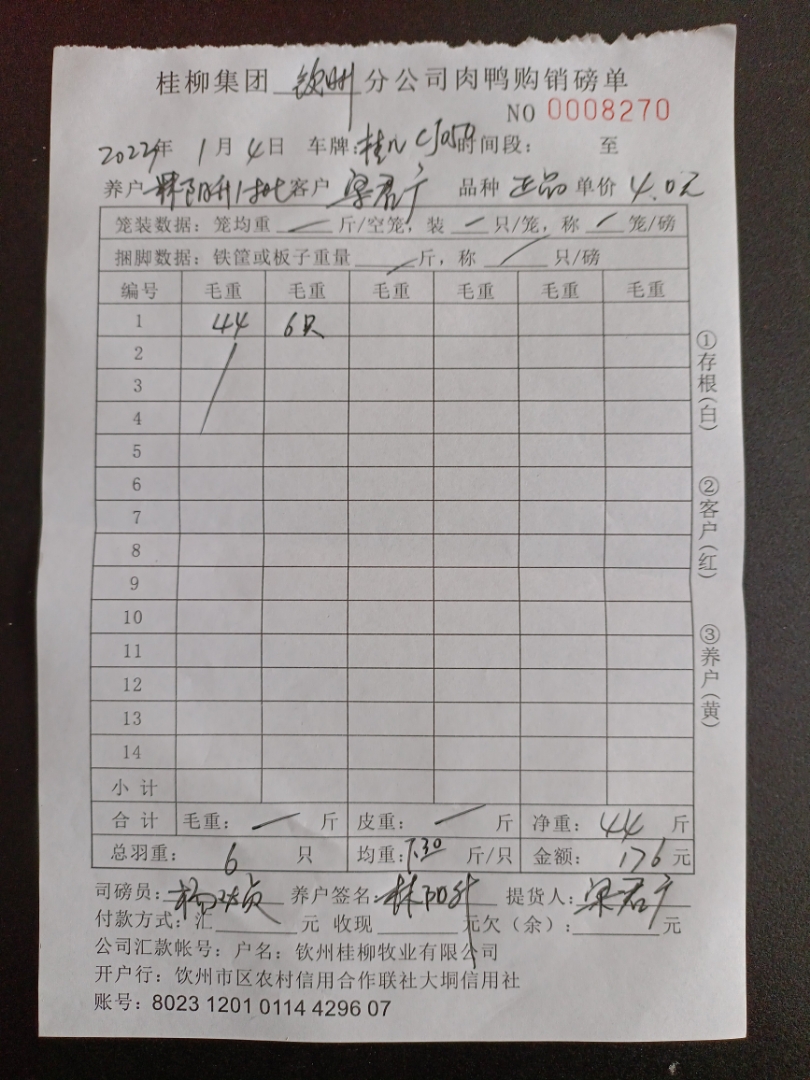 桂柳集团 钦州 分公司肉鸭购销磅单
NO 0008270
2022年 1月 4日 车牌: 时间段: 至
养户 林阳升1批 客户 梁君广 品种 正品 单价 4.0元
笼装数据: 笼均重 斤/空笼, 装 只/笼, 称 笼/磅
捆脚数据: 铁筐或板子重量 斤, 称 只/磅
编号 毛重 毛重 毛重 毛重 毛重 毛重
1 44 6只
2
3
4
5
6
7
8
9
10
11
12
13
14
小计
合计 毛重: 斤 皮重: 斤 净重: 44 斤
总羽重: 6 只 均重: 7.30 斤/只 金额: 176 元
司磅员: 养户签名: 林阳升 提货人: 梁君广
付款方式: 汇 元 收现 元欠(余): 元
公司汇款帐号: 户名: 钦州桂柳牧业有限公司
开户行: 钦州市区农村信用合作联社大垌信用社
账号: 8023 1201 0114 4296 07
①存根(白)
②客户(红)
③养户(黄)